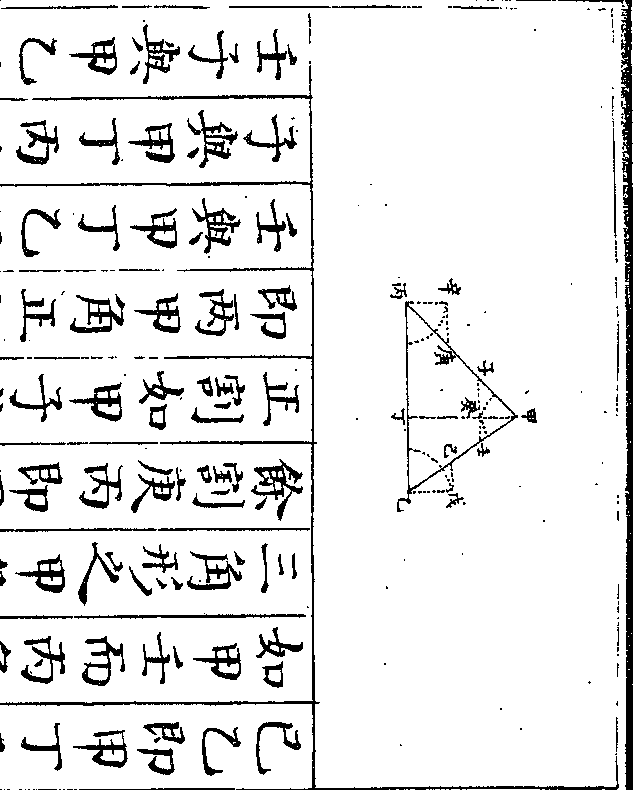 己乙即甲丁
如甲壬而丙
三角形之甲
餘割庚丙即
正割如甲子
即兩甲角正
壬與甲丁乙
子與甲丁丙
壬子與甲乙
甲
壬
癸
子
戊
己
庚
辛
乙
丁
丙